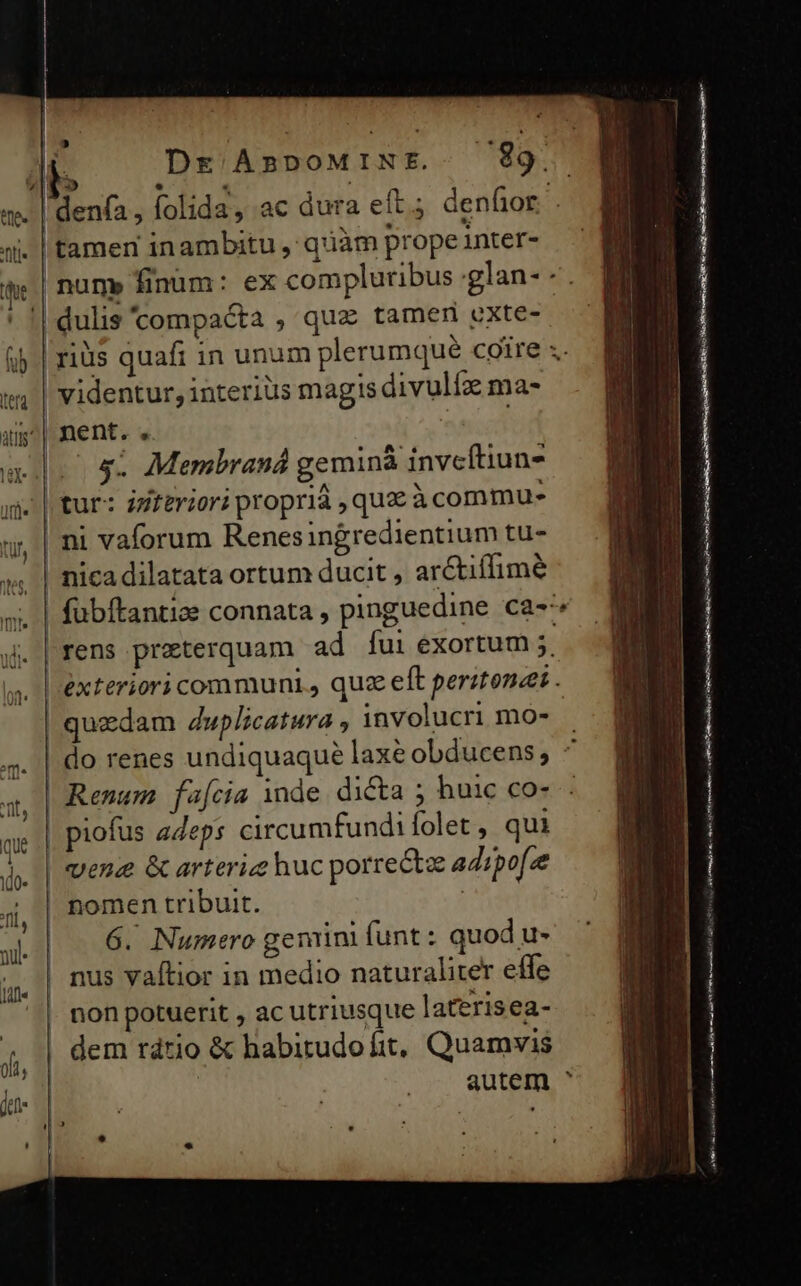 DE ABDOMINE. 89
denſa, ſolida, ac dura eſt; denſior
tamen in ambitu, quàm prope inter-
num ſinum: ex compluribus glan-
dulis compacta, quæ tamen exte-
riùs quaſi in unum plerumquè coïre
videntur, interiùs magis divulſæ ma-
nent.
5. Membranâ geminâ inveſtiun-
tur: interiori propriâ, quæ à commu-
ni vaſorum Renes ingredientium tu-
nica dilatata ortum ducit, arctiſſimè
ſubſtantiæ connata, pinguedine ca-
rens præterquam ad ſui exortum;
exteriori communi, quæ eſt peritonæi
quædam duplicatura, involucri mo-
do renes undiquaquè laxè obducens,
Renum faſcia inde dicta; huic co-
pioſus adeps circumfundi ſolet, qui
venæ & arteriæ huc porrectæ adipoſæ
nomen tribuit.
6. Numero gemini ſunt: quod u-
nus vaſtior in medio naturaliter eſſe
non potuerit, ac utriusque lateris ea-
dem ratio & habitudo ſit. Quamvis
autem